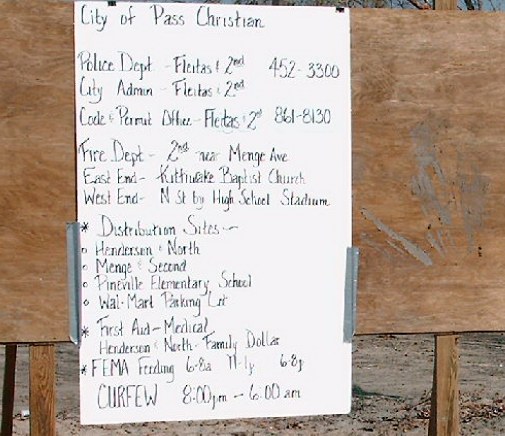 City of Pass Christian
Police Dept - Fleitas & 2nd 452-3300
City Admin - Fleitas & 2nd
Code & Permit Office - Fleitas & 2nd 861-8130
Fire Dept - 2nd near Menge Ave
East End - Kittiwake Baptist Church
West End - N St by High School Stadium
* Distribution Sites -
Henderson & North
Menge & Second
Pineville Elementary School
Wal-Mart Parking Lot
* First Aid - Medical
Henderson & North - Family Dollar
* FEMA Feeding 6-8a 11-1p 6-8p
CURFEW 8:00pm - 6:00am